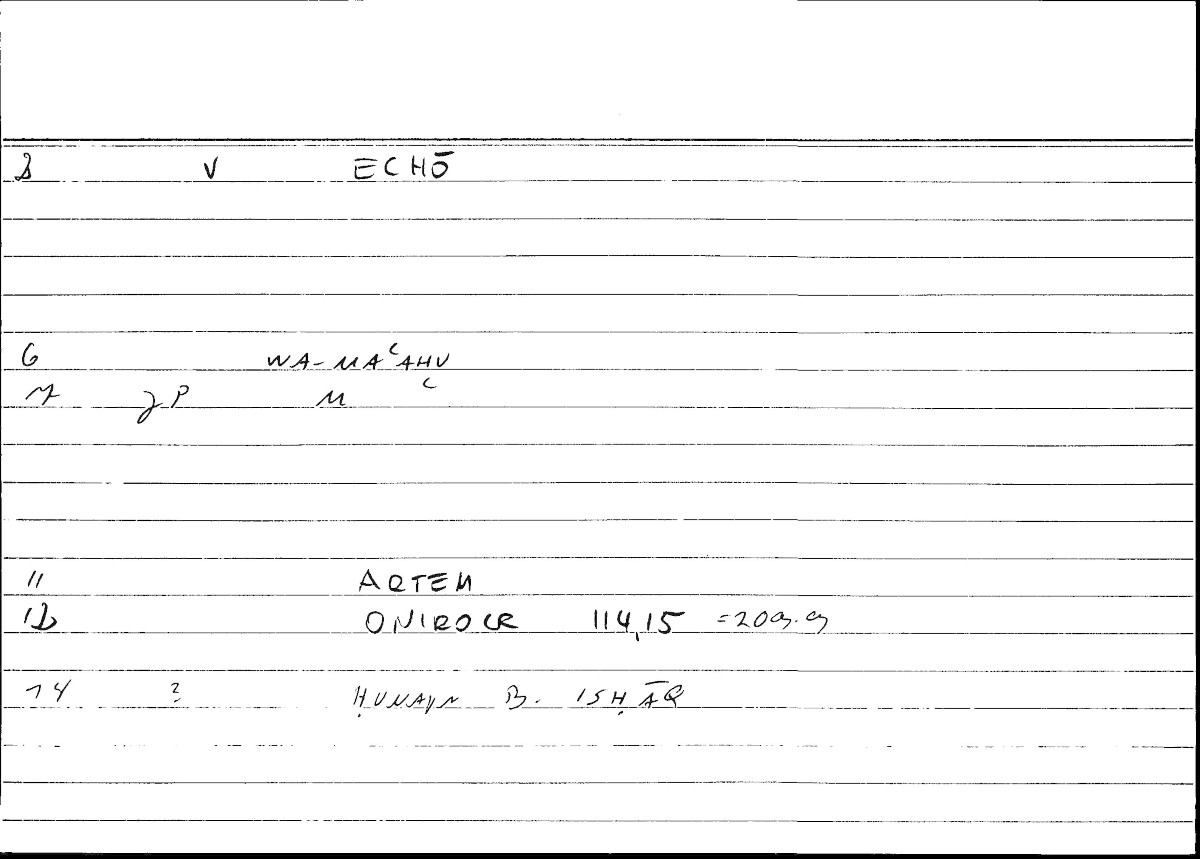 3 V ECHŌ
6 WA-MAʿAHU
7 JP M ʿ
11 ARTEM
12 ONIROCR 114,15 =209.9
14 ? ḤUNAYN B. ISḤĀQ